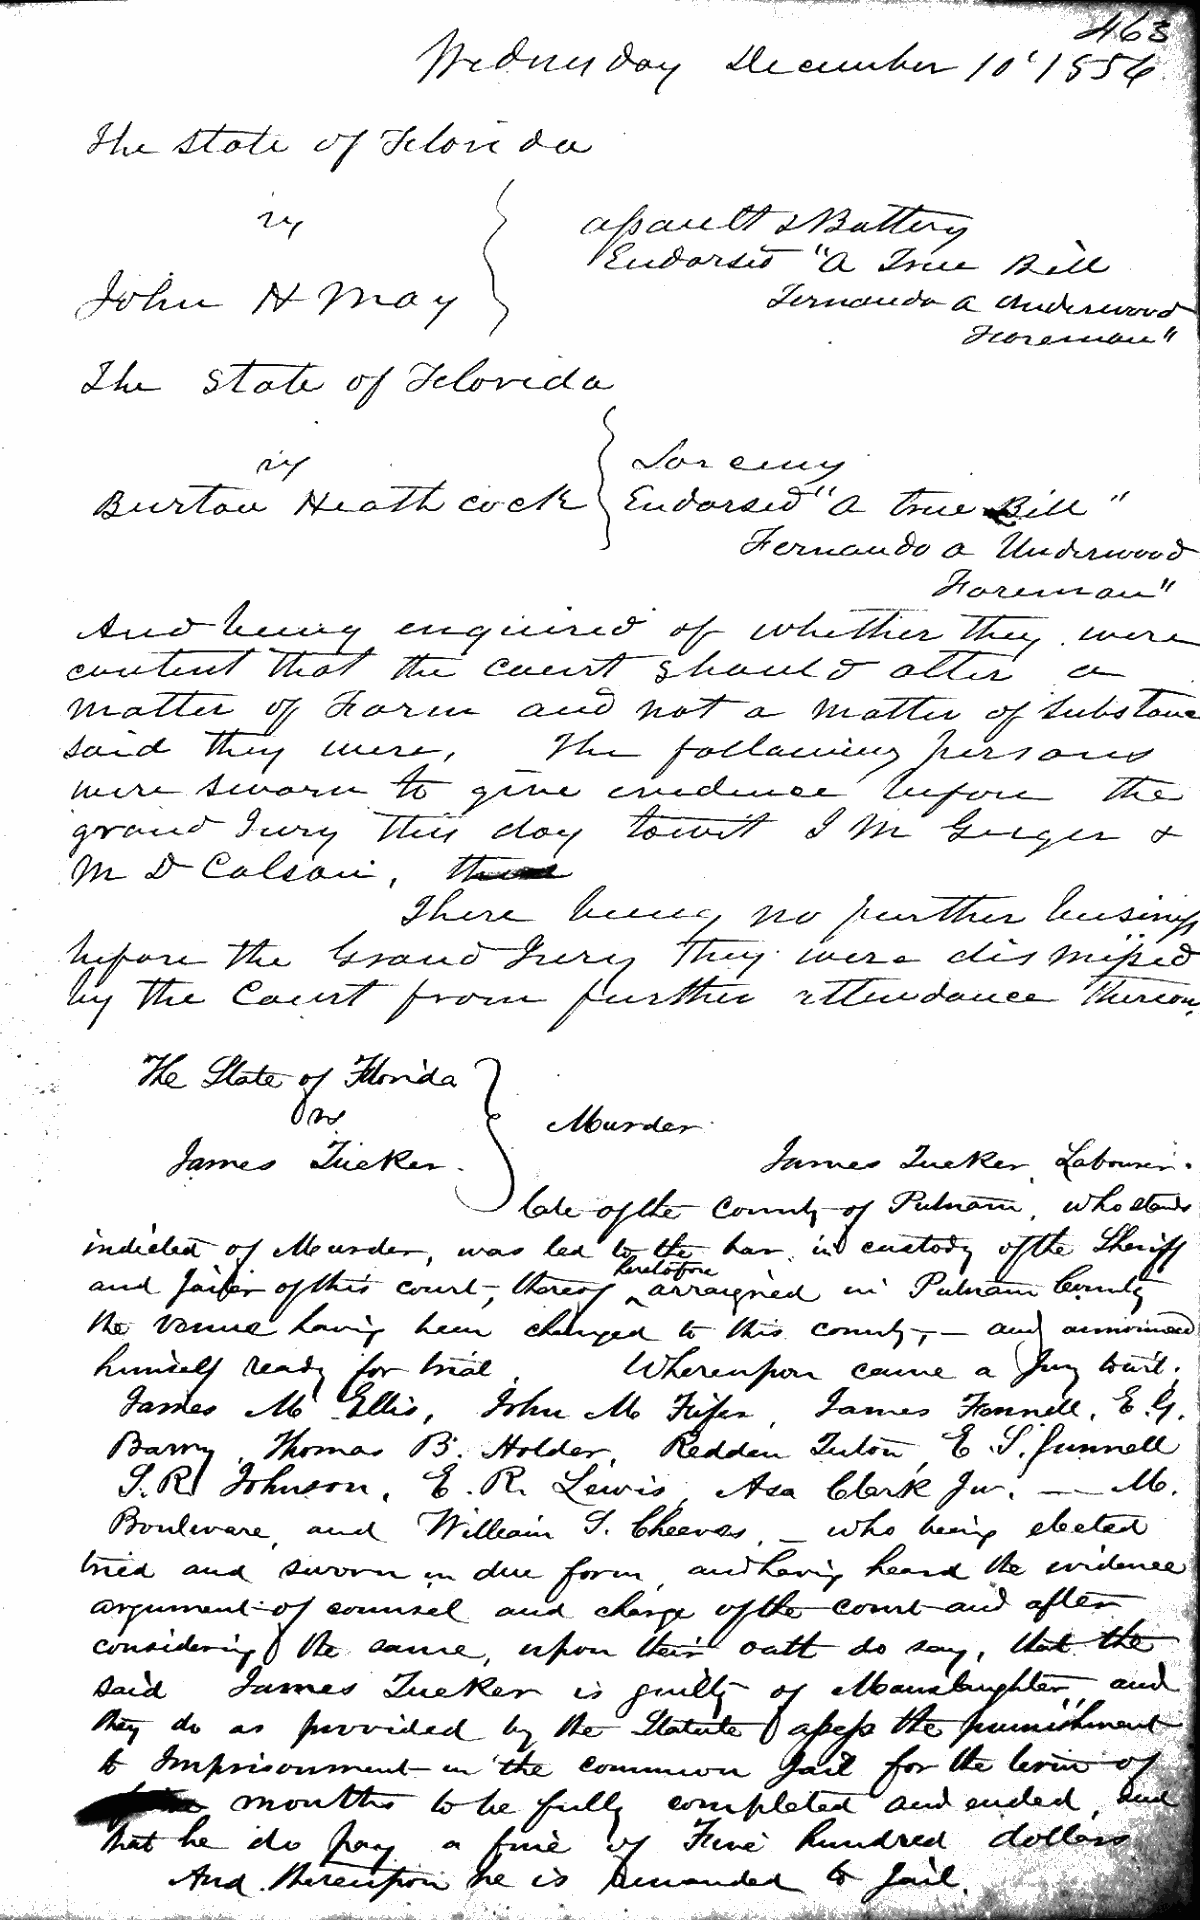 463
Wednesday December 10' 1856
The State of Florida
vs
assault & Battery
Endorsed "A True Bill
John H May
Fernando A Underwood
Foreman"
The State of Florida
vs
Larceny
Burton Heathcock
Endorsed "A true Bill"
Fernando A Underwood
Foreman"
And being enquired of whether they were
content that the court should alter a
matter of Form and not a matter of substance
said they were, The following persons
were sworn to give evidence before the
grand Jury this day towit J M Geiger &
M D Colson,
There being no further business
before the Grand Jury they were dismissed
by the Court from further attendance thereon,
The State of Florida
vs
Murder
James Tucker.
James Tucker, Labourer.
late of the County of Putnam, who stands
indicted of Murder, was led to the bar in custody of the Sheriff
and Jailer of this court, thereof heretofore arraigned in Putnam County
the venue having been changed to this county, — and announced
himself ready for trial. Whereupon came a Jury towit;
James M Ellis, John M Fifer, James Fennell, E. G.
Barry, Thomas B. Holder, Redden Tuton, E. S. Junnell
S. R. Johnson, E. R. Lewis, Asa Clark Jnr. — M.
Bouleware, and William S. Cheeves, — who being elected
tried and sworn in due form, and having heard the evidence
argument of counsel and charge of the court and after
considering the same, upon their oath do say, that the
said James Tucker is guilty of Manslaughter and
they do as provided by the Statute assess the punishment
to Imprisonment in the common Jail for the term of
months to be fully completed and ended, and
that he do pay a fine of Five hundred dollars
And thereupon he is remanded to Jail.